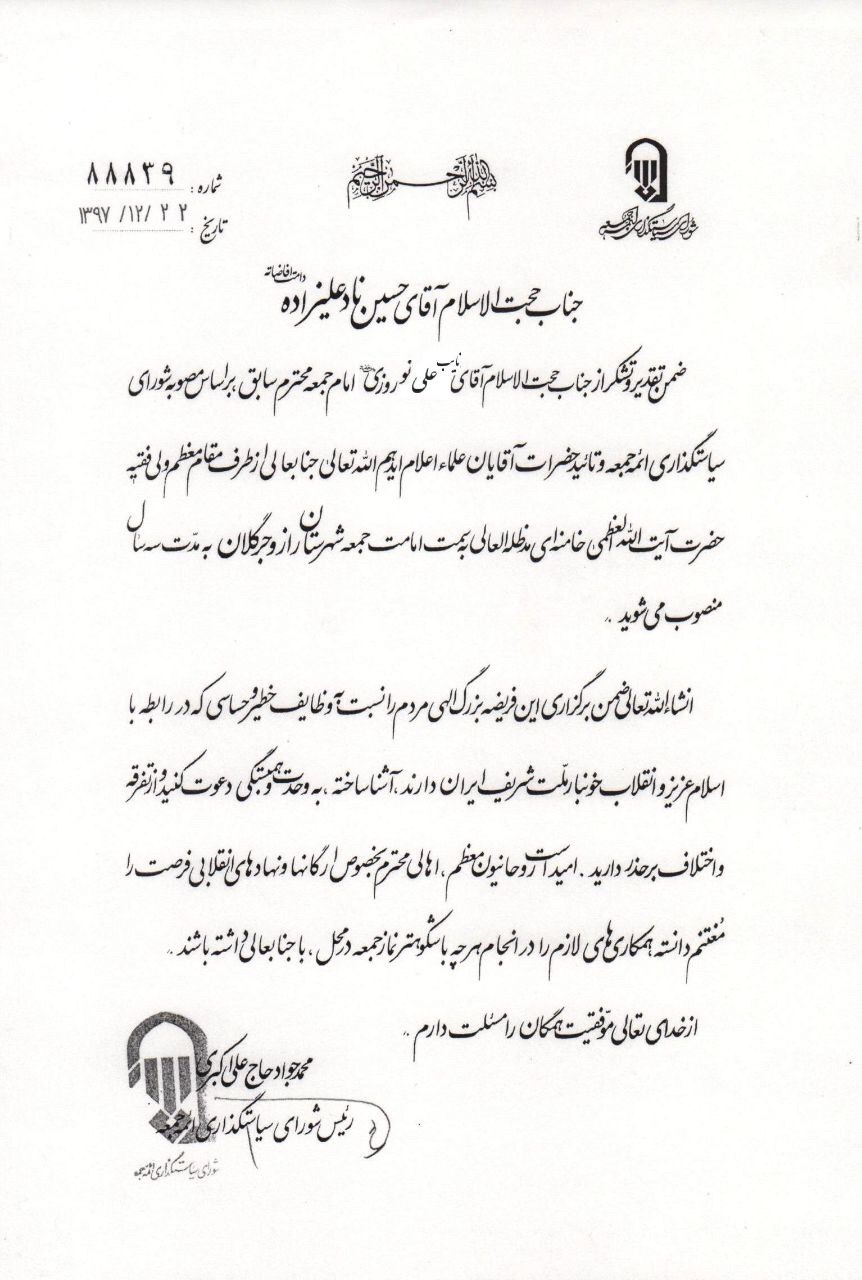 بسم الله الرحمن الرحیم
شورای سیاستگذاری ائمه جمعه
شماره : ۸۸۸۳۹
تاریخ : ۱۳۹۷/۱۲/۲۲
جناب حجت الاسلام آقای حسین نادعلیزاده دامت افاضاته
ضمن تقدیر و تشکر از جناب حجت الاسلام آقای نایب علی نوروزی امام جمعه محترم سابق ، بر اساس مصوبه شورای
سیاستگذاری ائمه جمعه و تائید حضرات آقایان علماء اعلام ایدهم الله تعالی جنابعالی از طرف مقام معظم ولی فقیه
حضرت آیت الله العظمی خامنه ای مدظله العالی به سمت امامت جمعه شهرستان راز و جرگلان به مدّت سه سال
منصوب می شوید .
انشاء الله تعالی ضمن برگزاری این فریضه بزرگ الهی مردم را نسبت به وظایف خطیر و حساسی که در رابطه با
اسلام عزیز و انقلاب خونبار ملّت شریف ایران دارند ، آشنا ساخته ، به وحدت و همبستگی دعوت کنید و از تفرقه
و اختلاف برحذر دارید . امید است روحانیون معظم ، اهالی محترم بخصوص ارگانها و نهادهای انقلابی فرصت را
مُغتنم دانسته همکاری های لازم را در انجام هر چه باشکوهتر نماز جمعه در محل ، با جنابعالی داشته باشند .
از خدای تعالی موّفقیت همگان را مسئلت دارم .
محمد جواد حاج علی اکبری
رئیس شورای سیاستگذاری ائمه جمعه
شورای سیاستگذاری ائمه جمعه